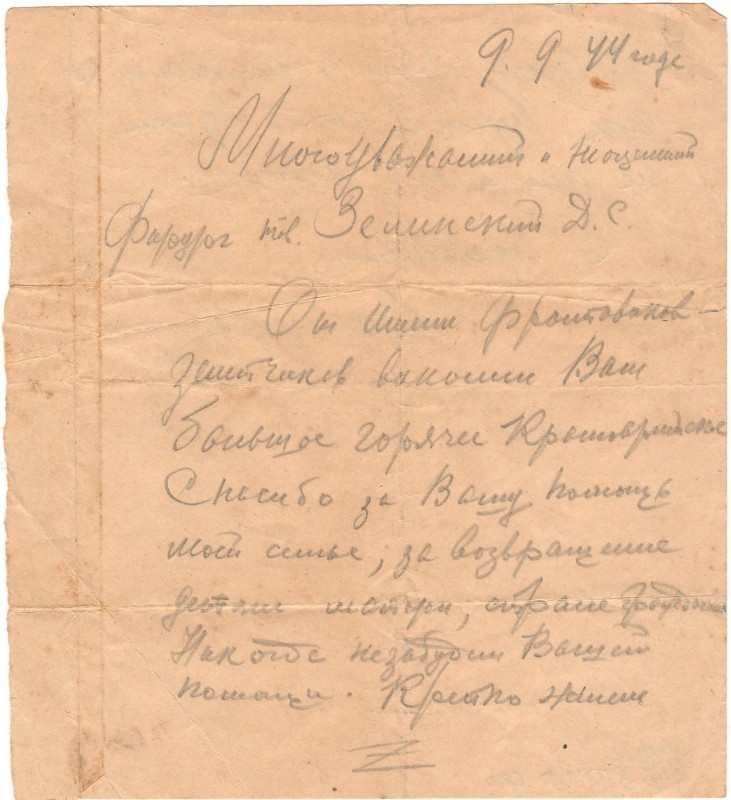 9. 9 44 годе
Многоуважаемый и
тов. Зелинский Д. С.
От имени фронтовиков –
Вам
большое горячее Красноармейское
Спасибо за Вашу помощь
моей семье, за возвращение
детям матери, стране
Никогда незабудем Вашей
помощи. Крепко жмем